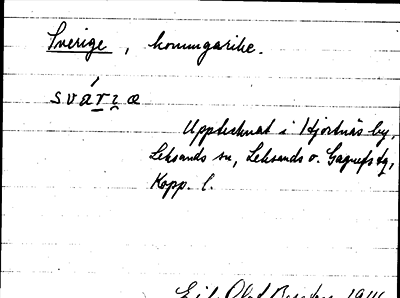 Sverige, konungarike.
svár̲ı̲æ
Upptecknat i Hjortnäs by,
Leksands sn, Leksands o. Gagnefs tg,
Kopp. l.